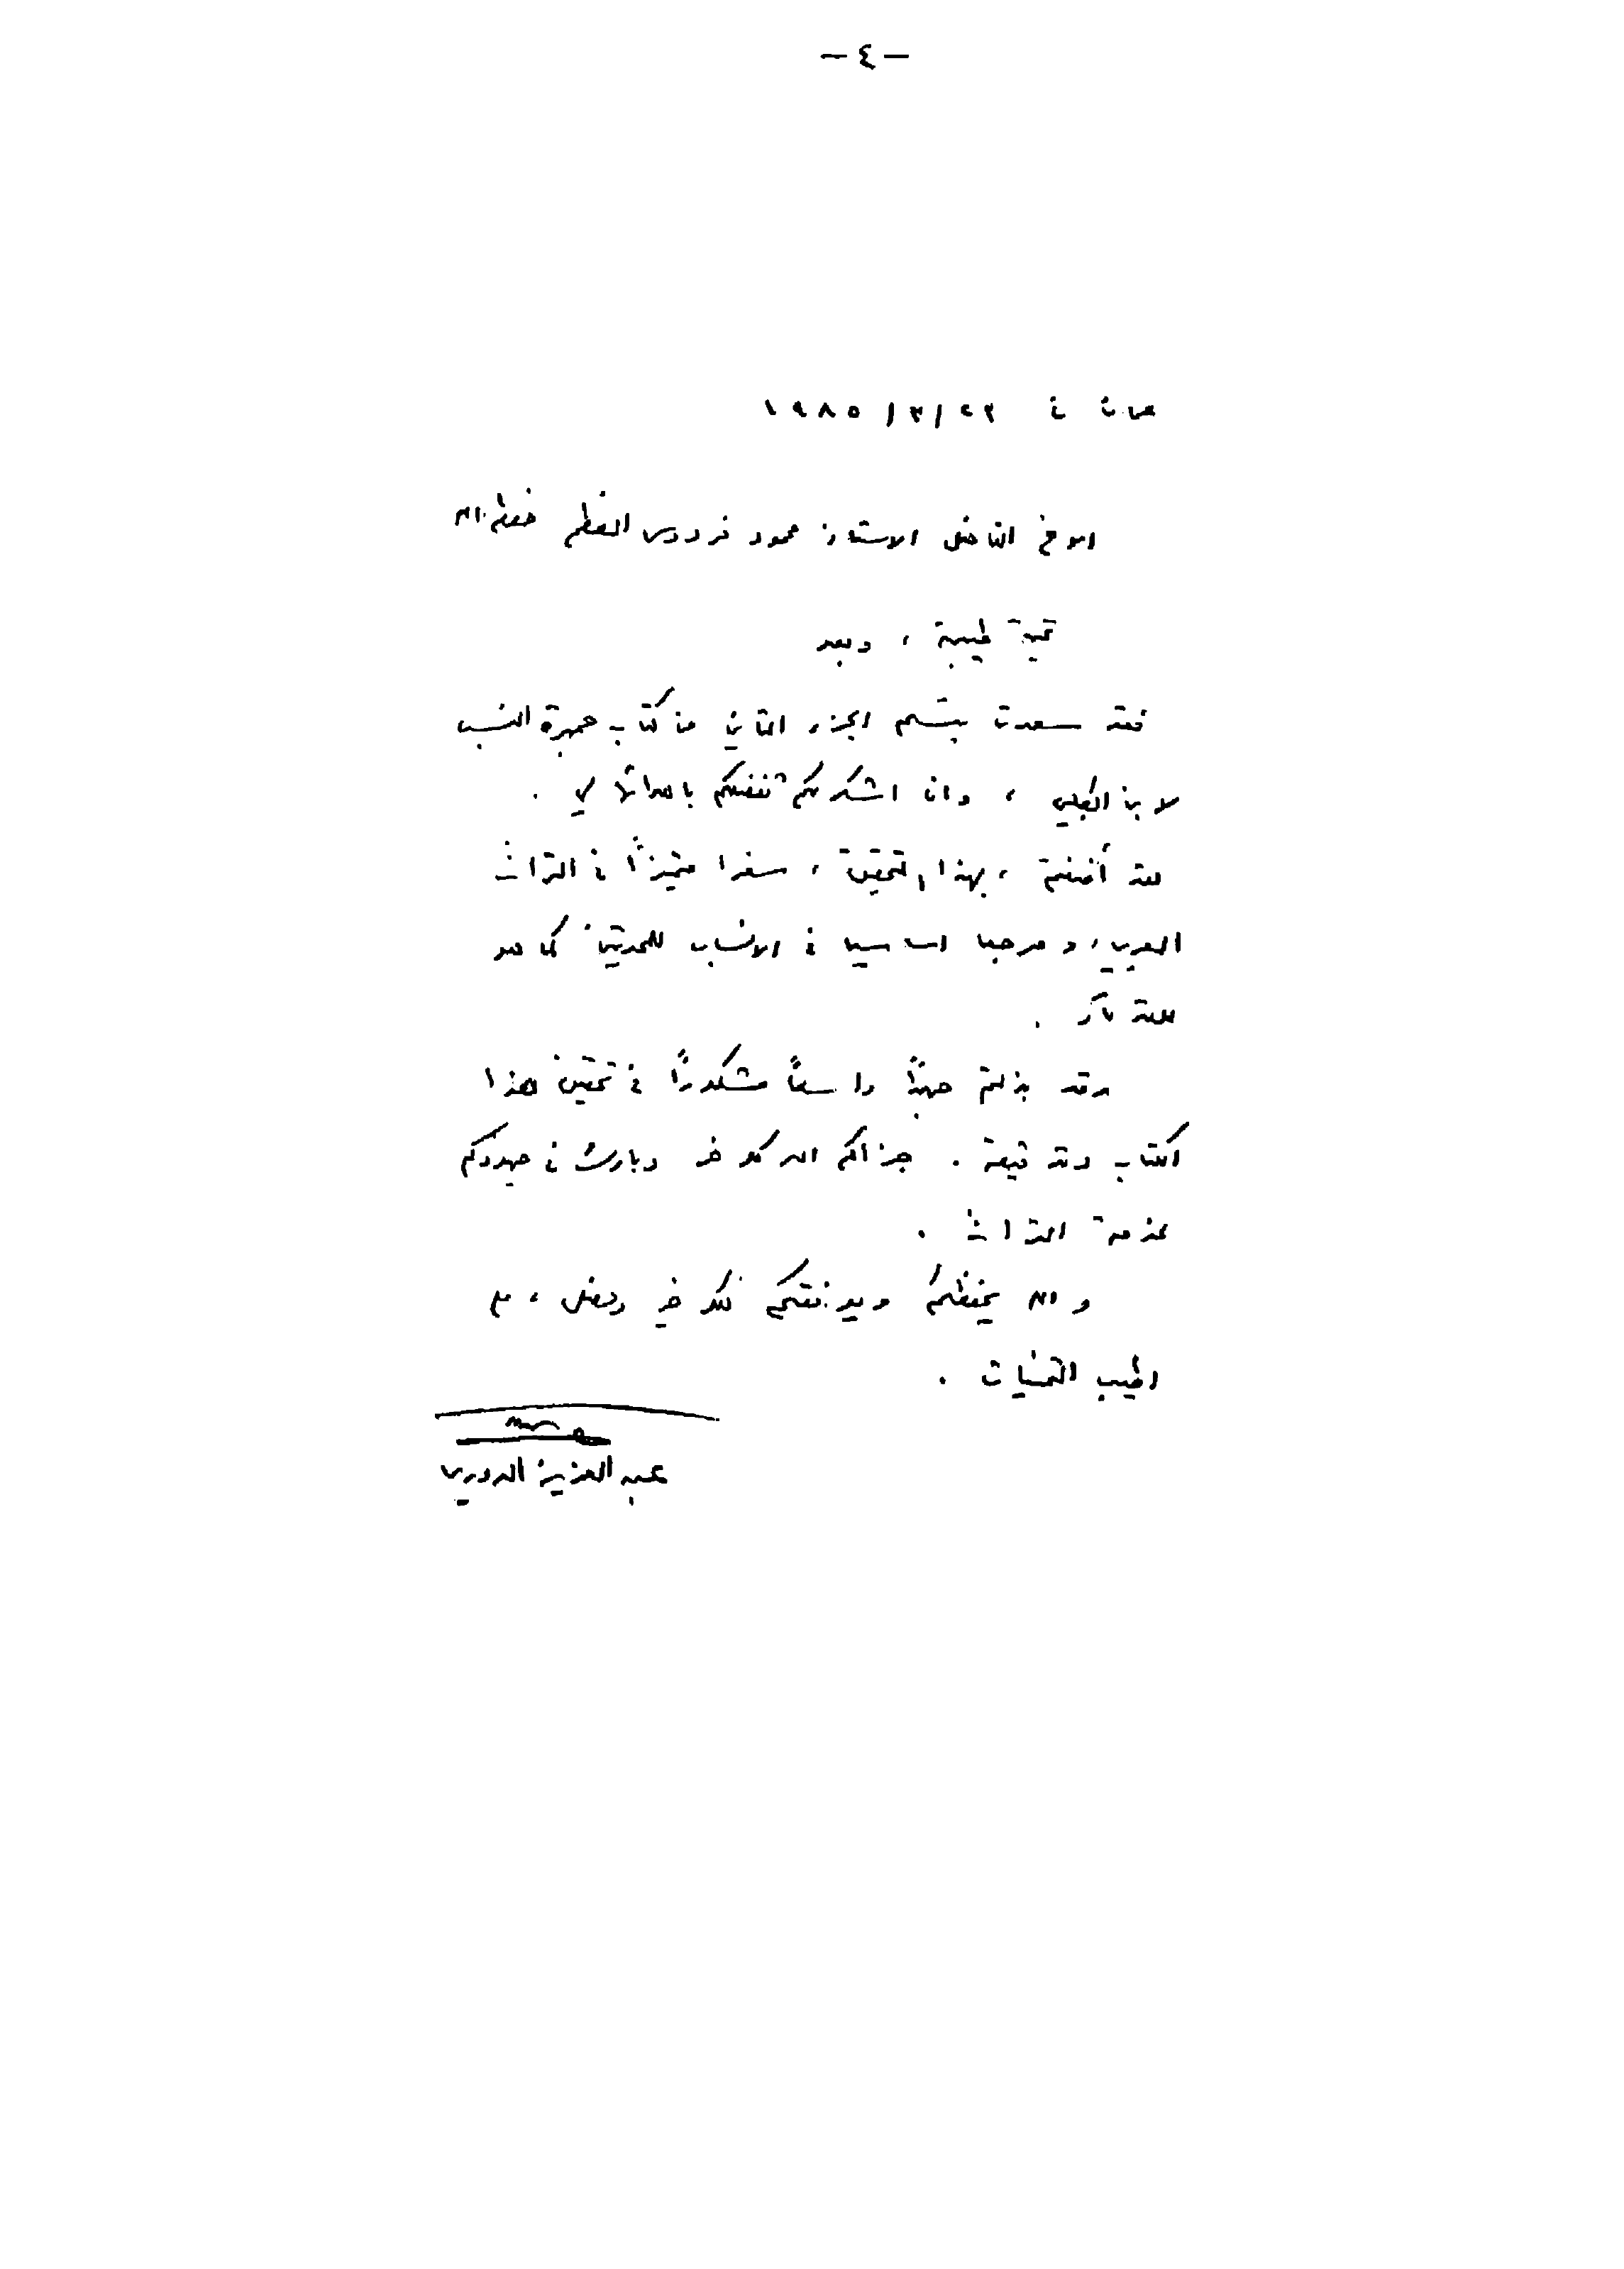 — ٤ —
عمان في ٢٢/٣/١٩٨٥
الاخ الفاضل الاستاذ محمود فردوس العظم حفظه الله
تحية طيبة ، وبعد
فقد سعدت بتسلم الجزء الثاني من كتاب جمهرة النسب
لابن الكلبي ، وانا اشكر لكم تفضلكم باهدائه لي .
لقد أضفتم ، بهذا التحقيق ، سفرا متميزاً في التراث
العربي ، و مرجعا اساسيا في الانساب للمحدثين كما هو
.
وقد بذلتم جهداً واسعاً مشكوراً في تحقيق هذا
الكتاب وقد قيمة . جزاكم الله كل خير وبارك في جهودكم
لخدمة التراث .
و الله يحفظكم ويوفقكم لكل خير وفضل ، مع
اطيب التمنيات .
عبد العزيز الدوري